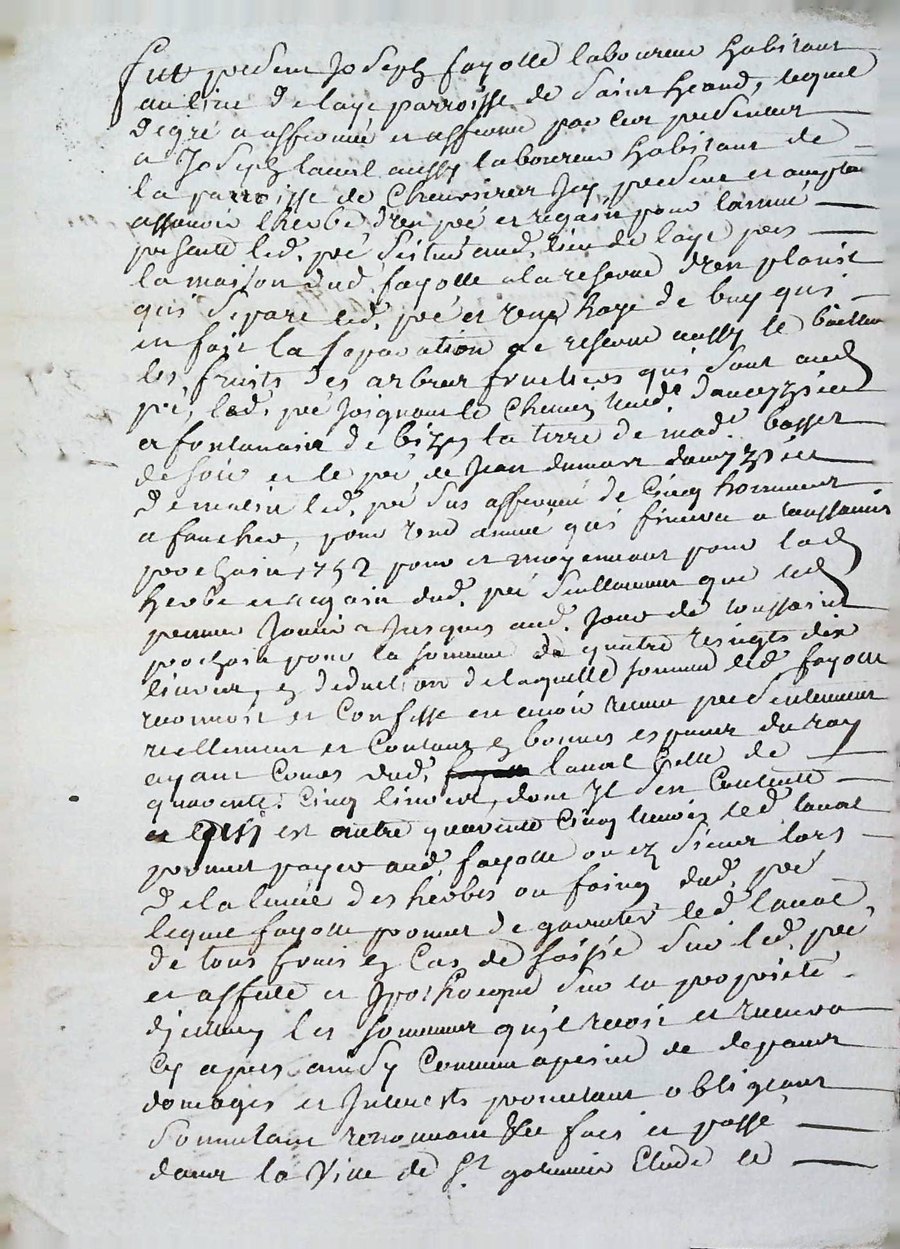 Fut present Joseph fayolle laboureur habitant
au lieu de laye parroisse de Saint heand, lequel
de gré a affermé et afferme par ces presentes
a Joseph laval aussy laboureur habitant de
la parroisse de Chevrieres Icy present et acceptan
assavoir lherbe d'un pré et regain pour l'année
presente led. pré situé aud. lieu de laye pres
la maison dud. fayolle a la reserve d'un
qui separe led. pré et une haye de buy qui
en fait la separation se reserve aussy le
les fruits des arbres fruitiers qui sont aud
pré, led. pré joignant le chemin tend. d'auezieu
a fontanais de bize, la terre de mad. basset
de soir et le pré de Jean dumas d'auezieu
de matin led. pré sus affermé de cinq hommes
a faucher, pour une année qui finira a toussaints
prochain 1752 pour et moyennant pour lad
herbe et regain dud. pré seullement que led
preneur jouira jusques aud. jour de toussaint
prochain pour la somme de quatre vingts dix
livres, en deduction de laquelle somme led fayolle
reconnoit et confesse en avoir receu presentement
reellement et contant en bonnes especes du roy
ayant cours dud. laval celle de
quarente cinq livres, dont Il s'en contente
et quant autre quarente cinq livres led laval
promet payer aud. fayolle ou es siens lors
de la levée des herbes ou foing dud. pré
lequel fayolle promet de garentir led laval
de tous frais en cas de saisie sur led. pré
et affecte et Ipotheque sur la proprieté
d'jcelluy les sommes qu'il reçoit et recevra
cy apres ainsy convenu a peine de depens
domages et Interests promettant obligeant
soumettant renonceant &c fait et passé
dans la ville de St galmier Etude et